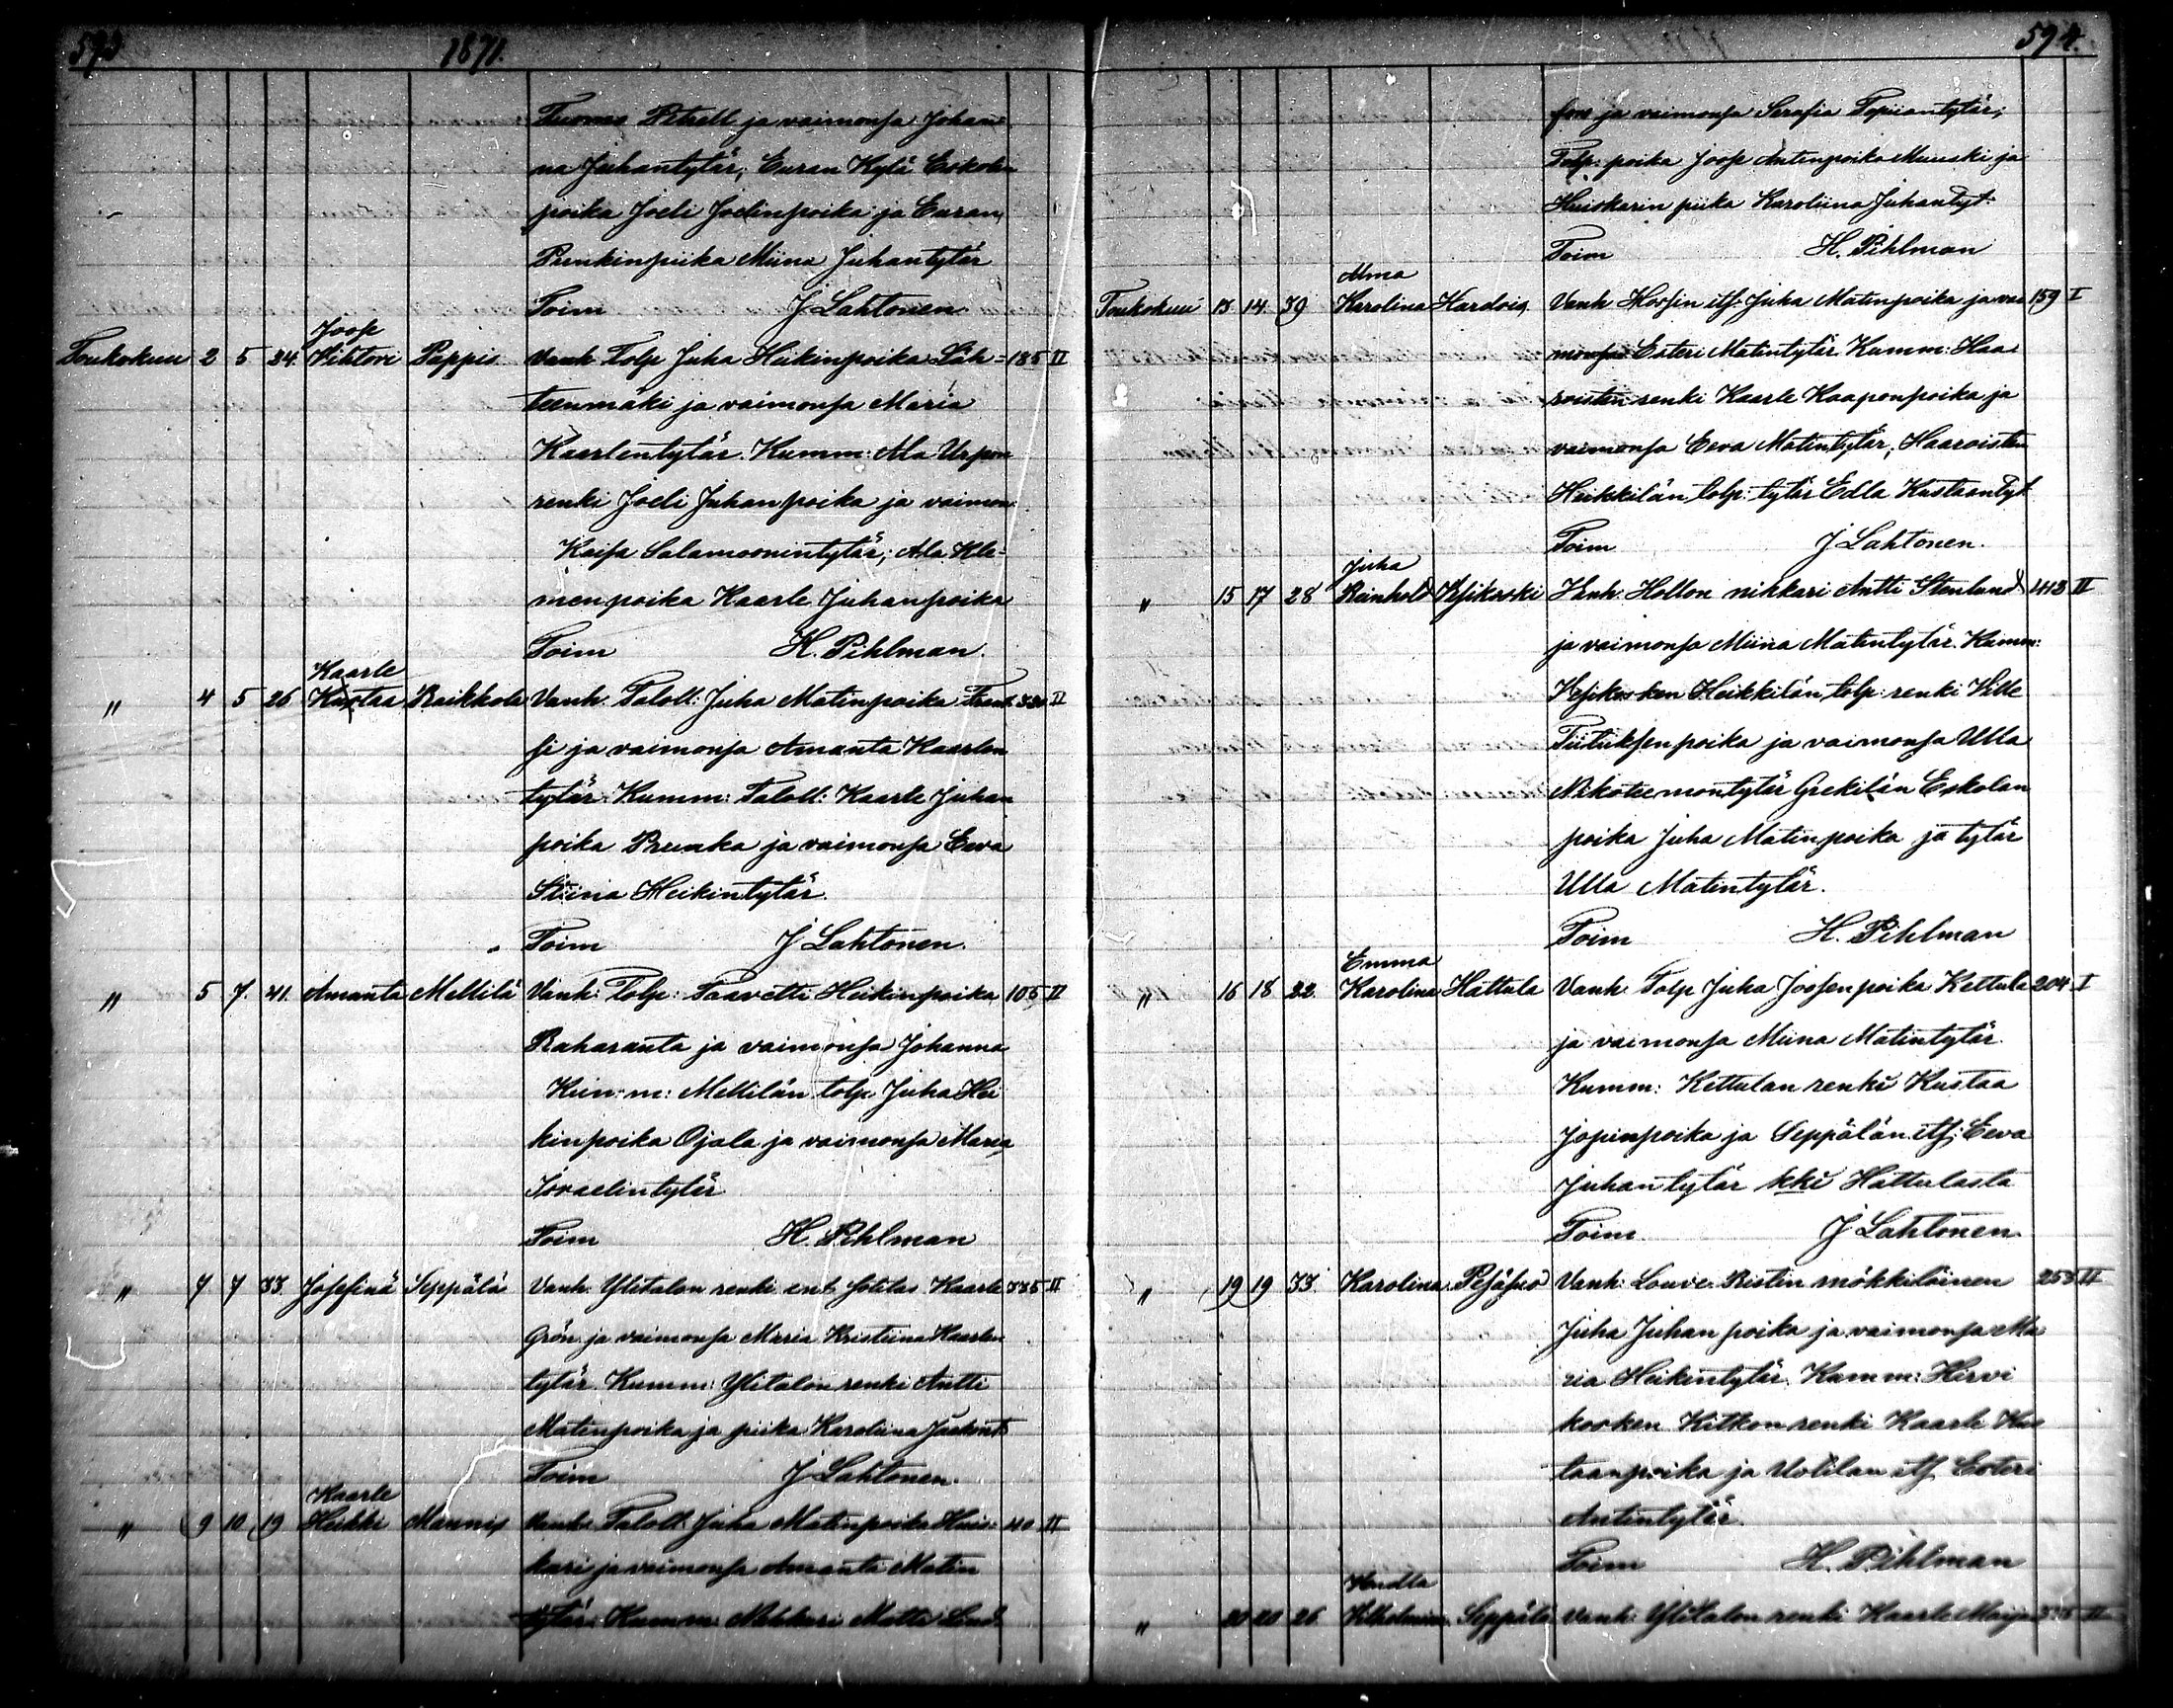 593
1871.
Tuomo Petrell ja vaimonsa Johan-
na Juhantytär; Euran Kylä Eskolan
poika Joeli Joelinpoika ja Euran
Prunkinpiika Miina Juhantytär
Toim J Lahtonen
Joop
Toukokuu 2 5 24. Vihtori Pappis. Vanh. Tolp Juha Heikinpoika Läh- 185 II
teenmäki ja vaimonsa Maria
Kaarlentytär. Kumm: Ala Urpon
renki Joeli Juhanpoika ja vaimon:
Kaisa Salamoonintytär; Ala Kle-
menpoika Kaarle Juhanpoika
Toim H. Pihlman.
Kaarle
" 4 5 26 Kustaa Raikkola Vanh. Taloll: Juha Matinpoika Frant
si ja vaimonsa Amanta Kaarlen
tytär. Kumm: Taloll: Kaarle Juhan
poika Prunka ja vaimonsa Eeva
Stiina Heikintytär.
Toim J Lahtonen.
" 5 7. 41. Amanta Mellilä Vanh: Tolp: Taavetti Heikinpoika 105 II
Raharanta ja vaimonsa Johanna
Kumm: Mellilän tolp. Juha Hei
kinpoika Ojala ja vaimonsa Maria
Israelintytär
Toim H. Pihlman
" 7 7 33 Josefina Seppälä Vanh. Ylitalon renki ent. sotilas Kaarle 335 II
Grön ja vaimonsa Maria Kristiina Kaarlen
tytär. Kumm: Ylitalon renki Antti
Matinpoika ja piika Karoliina
Toim J Lahtonen.
Kaarle
" 9 10 19 Heikki Mannis Vanh. Taloll. Juha Matinpoika Huis- 40 II
kari ja vaimonsa Amanta Matin
tytär. Kumm: Nikkari Matti
594.
ja vaimonsa Serafia
Tolp: poika Joop Antinpoika Muuski ja
Huiskarin piika Karoliina Juhantyt.
Toim H. Pihlman
Alma
Toukokuu 13 14. 39 Karolina Vanh its: Juha Matinpoika ja vai 159 I
monsa Esteri Matintytär Kumm: Haa
roisten renki Kaarle Kaaponpoika ja
vaimonsa Eeva Matintytär; Haaroisten
Heikkilän tolp: tytär Edla Kustaantyt
Toim J Lahtonen.
Juha
" 15 17 28 Reinhold Kesikoski Vanh: Hollon nikkari Antti Stenlund 413 II
ja vaimonsa Miina Matintytär. Kumm:
Kesikosken Heikkilän tolp: renki Ville
Tiituksenpoika ja vaimonsa Ulla
Nikoteemontytär Grekilän Eskolan
poika Juha Matinpoika ja tytär
Ulla Matintytär.
Toim H. Pihlman
Emma
" 16 18 22. Karolina Hattula Vanh. Tolp Juha Joosenpoika Kettula 204 I
ja vaimonsa Miina Matintytär.
Kumm: Kettulan renki Kustaa
Jopinpoika ja Seppälän its: Eeva
Juhantytär kki Hattulasta
Toim. J Lahtonen
" 19 19 33. Karolina Pesäsuo Vanh: Louve Ristin mökkiläinen 253 II
Juha Juhanpoika ja vaimonsa Ma
ria Heikintytär. Kumm: Hirvi
kosken Kitkon renki Kaarle Kus
taanpoika ja Uotilan its Esteri
Antintytär.
Toim H. Pihlman
Hendla
" 20 20 26 Vilhelmiina Seppälä Vanh: Ylitalon renki Kaarle II